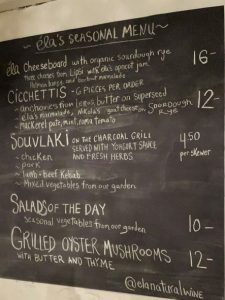 ~ ela's SEASONAL MENU ~
ela Cheeseboard with organic sourdough rye 16-
three cheeses from Lipsi with ela's apricot jam,
and bourbon marmalade
CICCHETTIS - 6 PIECES PER ORDER
~ anchovies from Leros, butter on superseed 12-
~ ela's marmalade, Nikolas goat cheese on Sourdough
Rye
~ mackerel pate, mint, roma tomato
SOUVLAKI ON THE CHARCOAL GRILL 4,50
SERVED WITH YOGHURT SAUCE per skewer
AND FRESH HERBS
~ chicken
~ pork
~ lamb + beef kebab
~ Mixed vegetables from our garden
SALADS OF THE DAY 10-
seasonal vegetables from our garden
GRILLED OYSTER MUSHROOMS 12-
WITH BUTTER AND THYME
@elanaturalwine